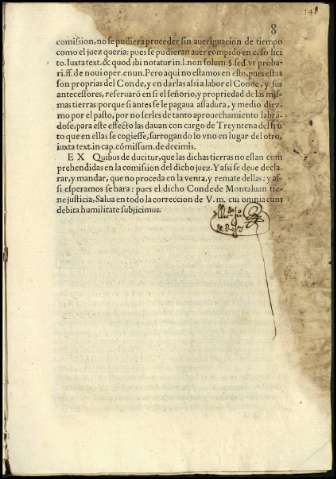 8
comission, no se pudiera proceder sin aueriguacion de tiempo
como el juez queria: pues se pudieran auer rompido en c. so lici
to. Iuxta text. & quod ibi notatur in l. non solum §. sed vt proba-
ri. ff. de noui oper. enun. Pero aqui no estamos en esto, pues estas
son proprias del Conde, y en darlas assi a labor el Conde, y sus
antecessores, reseruarõ en si el señorio, y propriedad de las mis-
mas tierras porque si antes se le pagaua assadura, y medio diez-
mo por el pasto, por no serles de tanto aprouechamiento labrã-
dose, para este effecto las dauan con cargo de Treyntena del fru
to que en ellas se cogiesse, surrogando lo vno en lugar del otro,
iuxta text. in cap. cõmissum. de decimis.
E X Quibus ducitur, que las dichas tierras no estan com
prehendidas en la comission del dicho juez. Y assi se deue decla-
rar, y mandar, que no proceda en la venta, y remate dellas: y as-
si esperamos se hara: pues el dicho Conde de Montaluan tie-
ne justicia, Salua en todo la correccion de V. m. cui omnia cum
debita humilitate subjicimus.